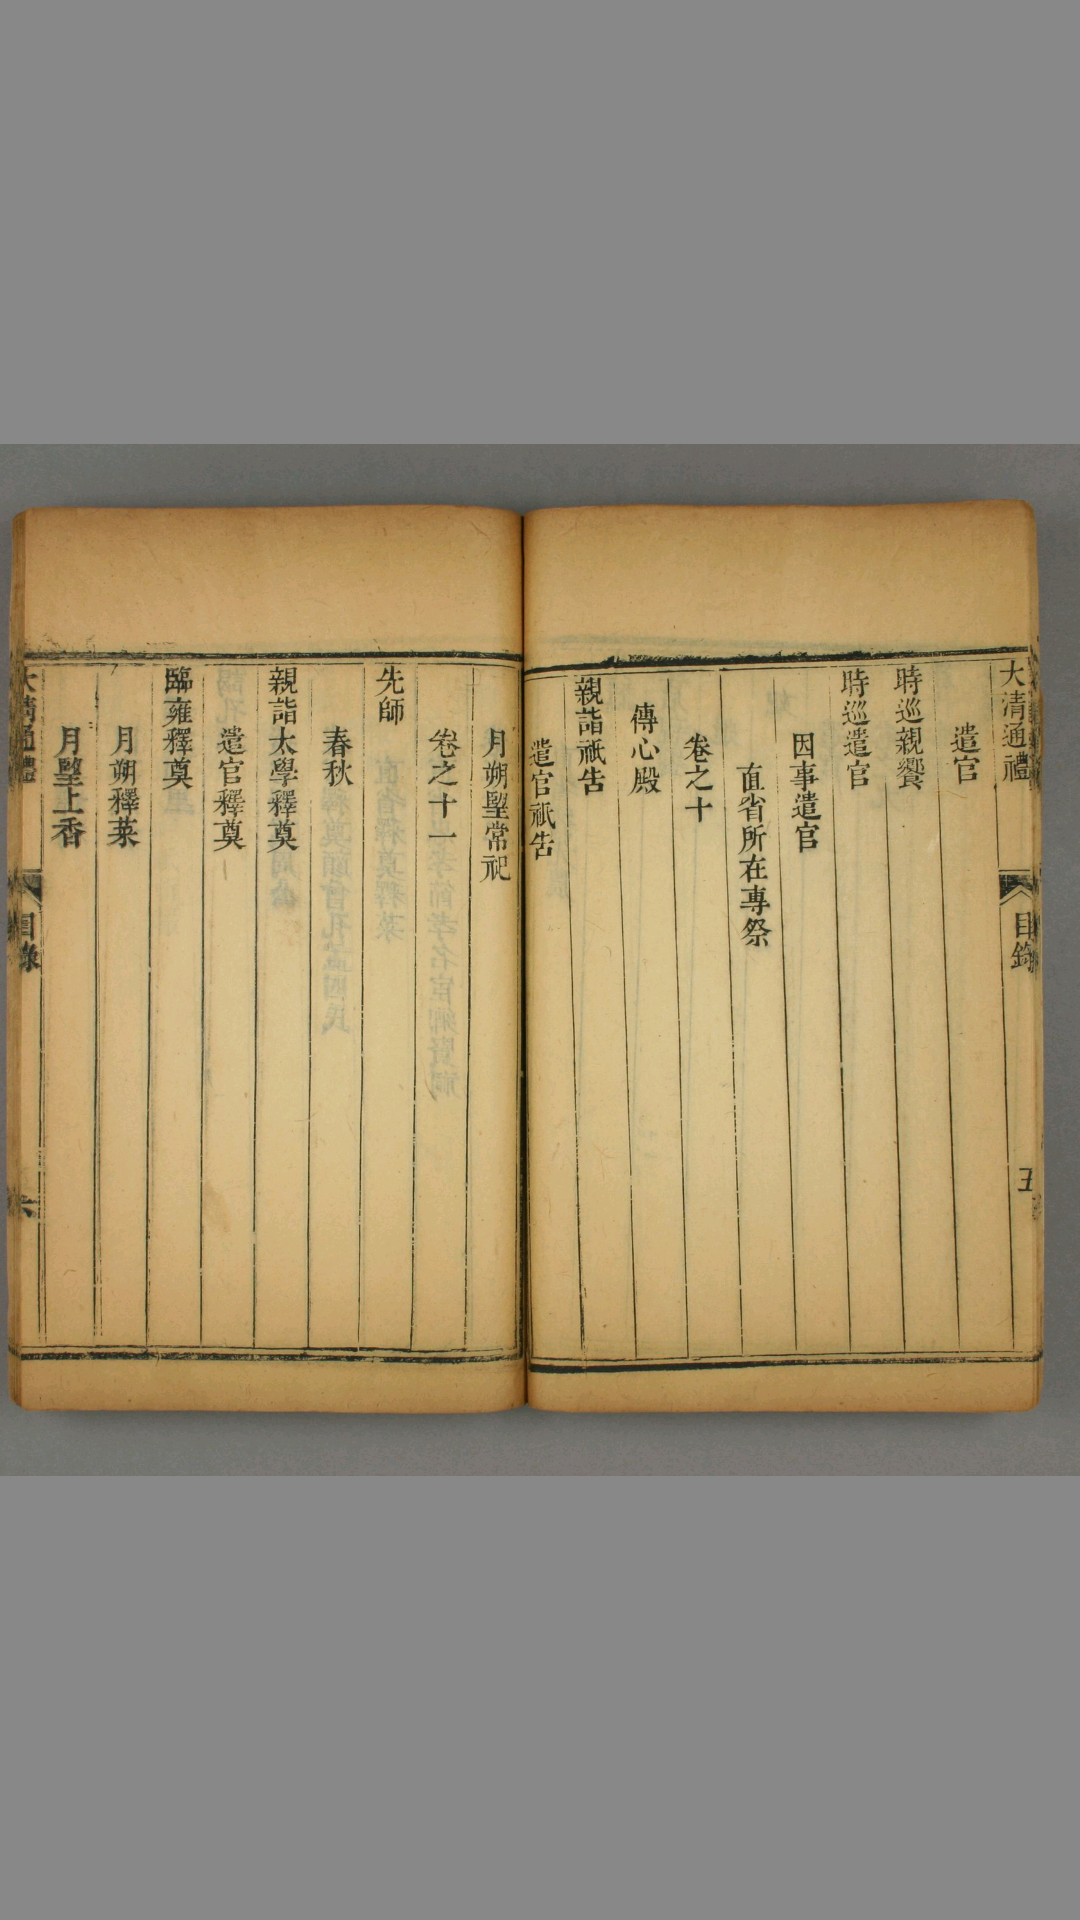 大清通禮 目錄 五
遣官
時巡親饗
時巡遣官
因事遣官
直省所在專祭
卷之十
傳心殿
親詣祇告
遣官祇告
月朔朢常祀
卷之十一
先師
春秋
親詣太學釋奠
遣官釋奠
臨雍釋奠
月朔釋菜
月朢上香
大清通禮 目錄 六